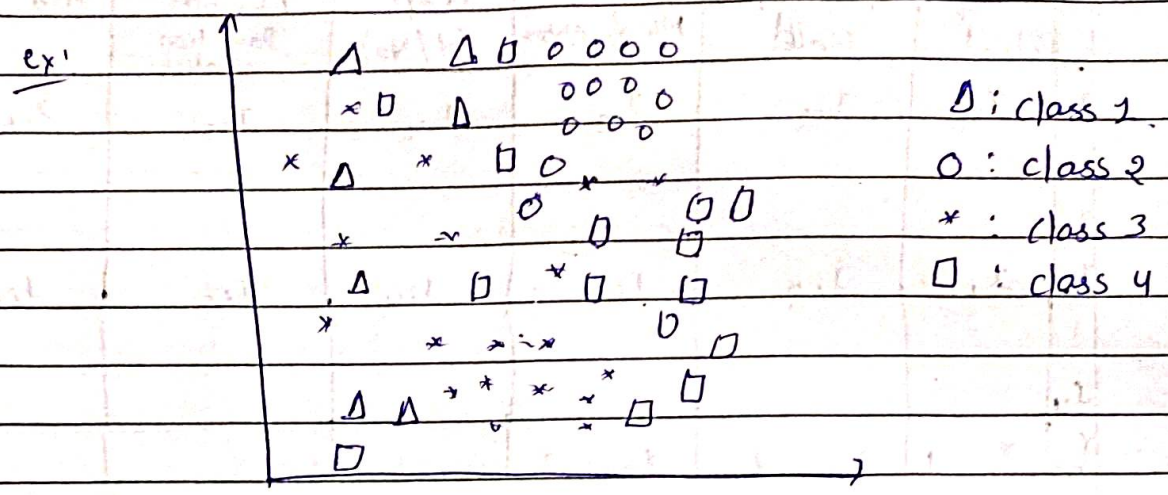 ex'
Δ : class 1
O : class 2
* : class 3
□ : class 4